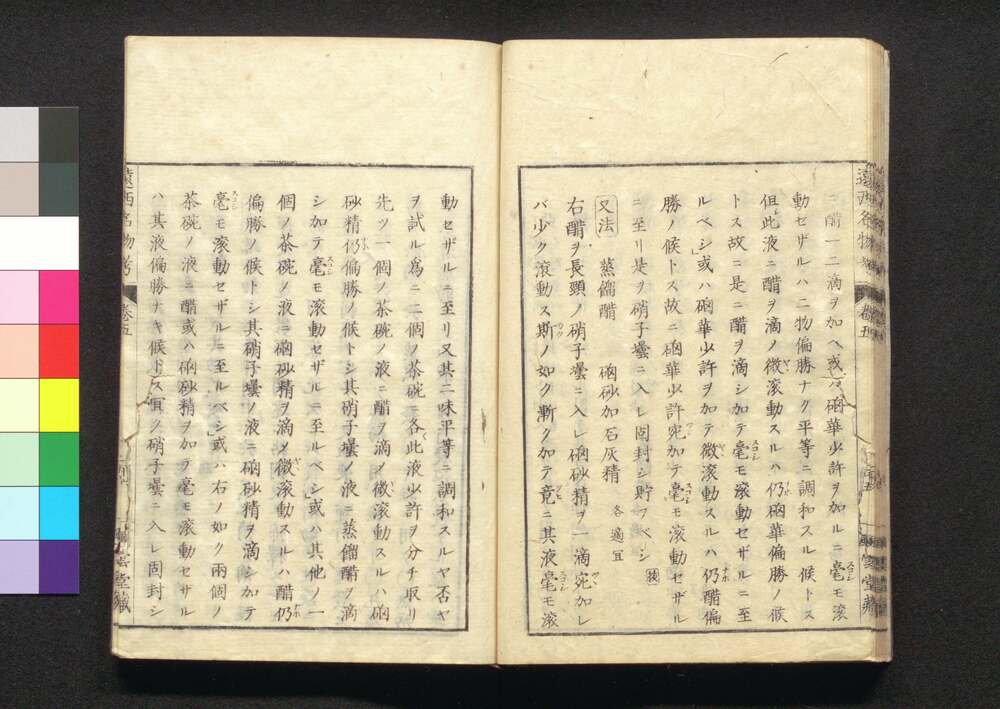 ニ醋一二滴ヲ加ヘ或ハ磠華少許ヲ加ルニ毫モ滾
動セザルハ二物偏勝ナク平等ニ調和スル候トス
但此液ニ醋ヲ滴ノ微滾動スルハ仍磠華偏勝ノ候
トス故ニ是ニ醋ヲ滴シ加テ毫モ滾動セザルニ至
ルベシ」或ハ磠華少許ヲ加テ微滾動スルハ仍醋偏
勝ノ候トス故ニ磠華少許宛加テ毫モ滾動セザル
ニ至リ是ヲ硝子壜ニ入レ固封シ貯フベシ
又法 蒸餾醋 磠砂加石灰精 各適宜
右醋ヲ長頸ノ硝子壜ニ入レ磠砂精ヲ一滴宛加レ
バ少ク滾動ス斯ノ如ク漸ク加テ竟ニ其液毫モ滾
動セザルニ至リ又其二味平等ニ調和スルヤ否ヤ
ヲ試ル爲ニ二個ノ茶碗ニ各此液少許ヲ分チ取リ
先ツ一個ノ茶碗ノ液ニ醋ヲ滴ノ微滾動スルハ磠
砂精仍偏勝ノ候トシ其硝子壜ノ液ニ蒸餾醋ヲ滴
シ加テ毫モ滾動セザルニ至ルベシ」或ハ其他ノ一
個ノ茶碗ノ液ニ磠砂精ヲ滴ノ微滾動スルハ醋仍
偏勝ノ候トシ其硝子壜ノ液ニ磠砂精ヲ滴シ加テ
毫モ滾動セザルニ至ルベシ」或ハ右ノ如ク兩個ノ
茶碗ノ液ニ醋或ハ磠砂精ヲ加ヲ毫モ滾動セザル
ハ其液偏勝ナキ候トス冝ク硝子壜ニ入レ固封シ
遠西名物考 卷五